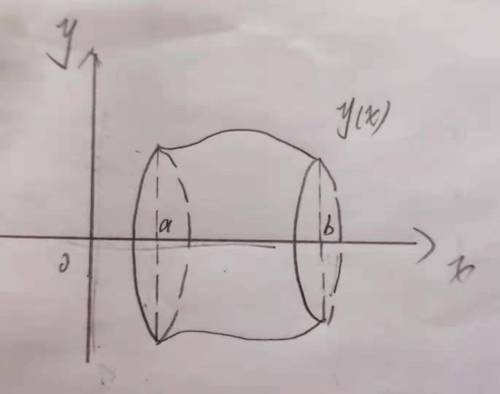 y
y(x)
a
b
0
x